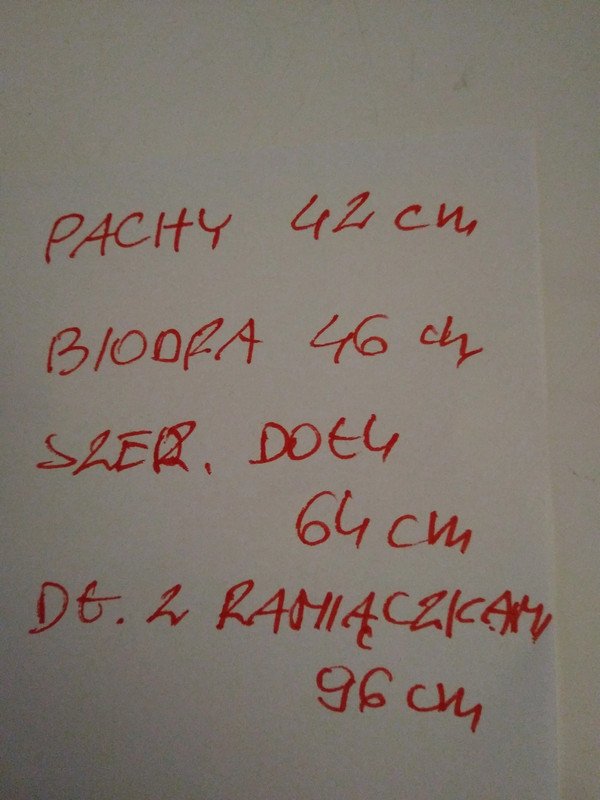 PACHY 42 cm
BIODRA 46 cm
SZER. DOŁU
64 cm
DŁ. Z RAMIĄCZKAMI
96 cm